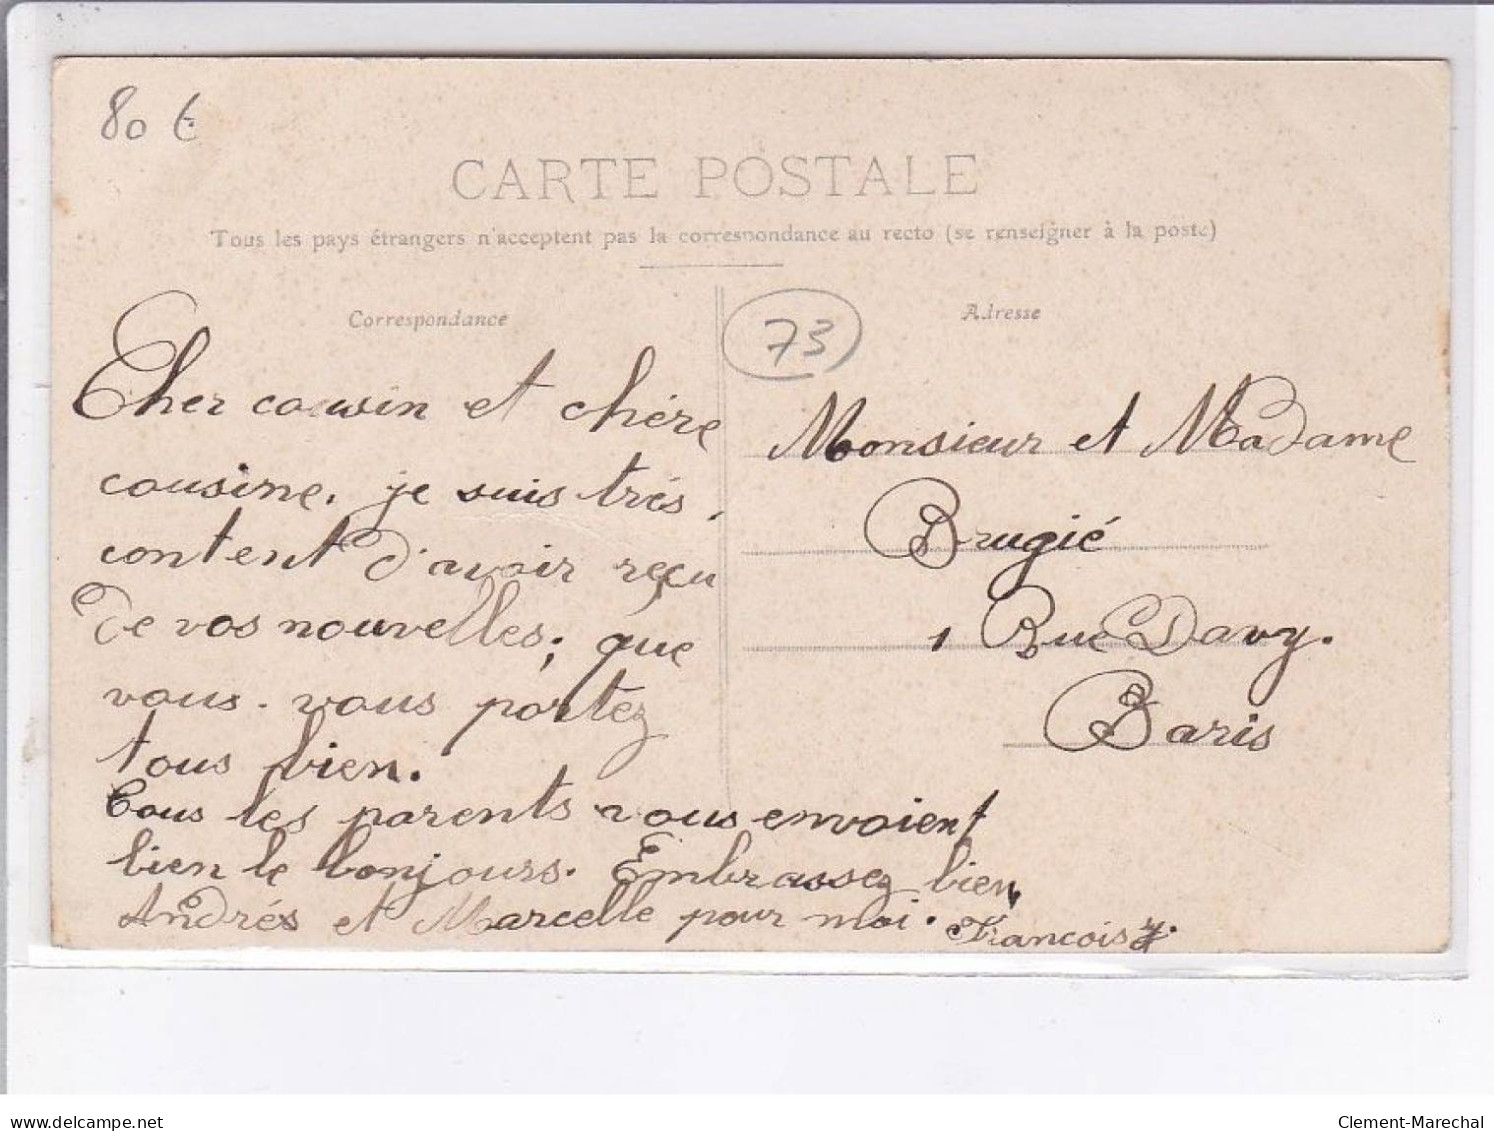 80 €
CARTE POSTALE
Tous les pays étrangers n'acceptent pas la correspondance au recto (se renseigner à la poste)
Correspondance
Cher cousin et chére
cousine. je suis très
content d'avoir reçu
de vos nouvelles; que
vous vous portez
tous bien.
Tous les parents vous envoient
bien le bonjours. Embrassez bien
Andrés et Marcelle pour moi. Francois
73
Adresse
Monsieur et Madame
Brugié
1 Rue Davy.
Paris
delcampe.net
Clement-Marechal